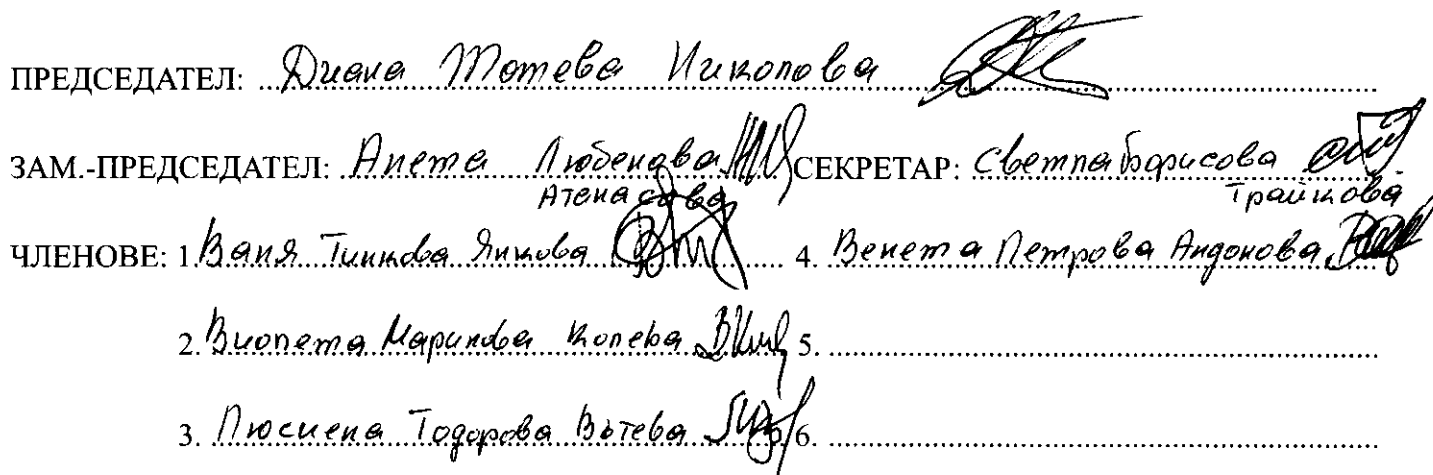 ПРЕДСЕДАТЕЛ: Диана Тотева Николова
ЗАМ.-ПРЕДСЕДАТЕЛ: Анета Любенова СЕКРЕТАР: Светла Борисова
Атенасова Трайкова
ЧЛЕНОВЕ: 1. Ваня Тинкова Янкова 4. Венета Петрова Андонова
2. Виолета Маринова Колева 5.
3. Люсиена Тодорова Вътева 6.